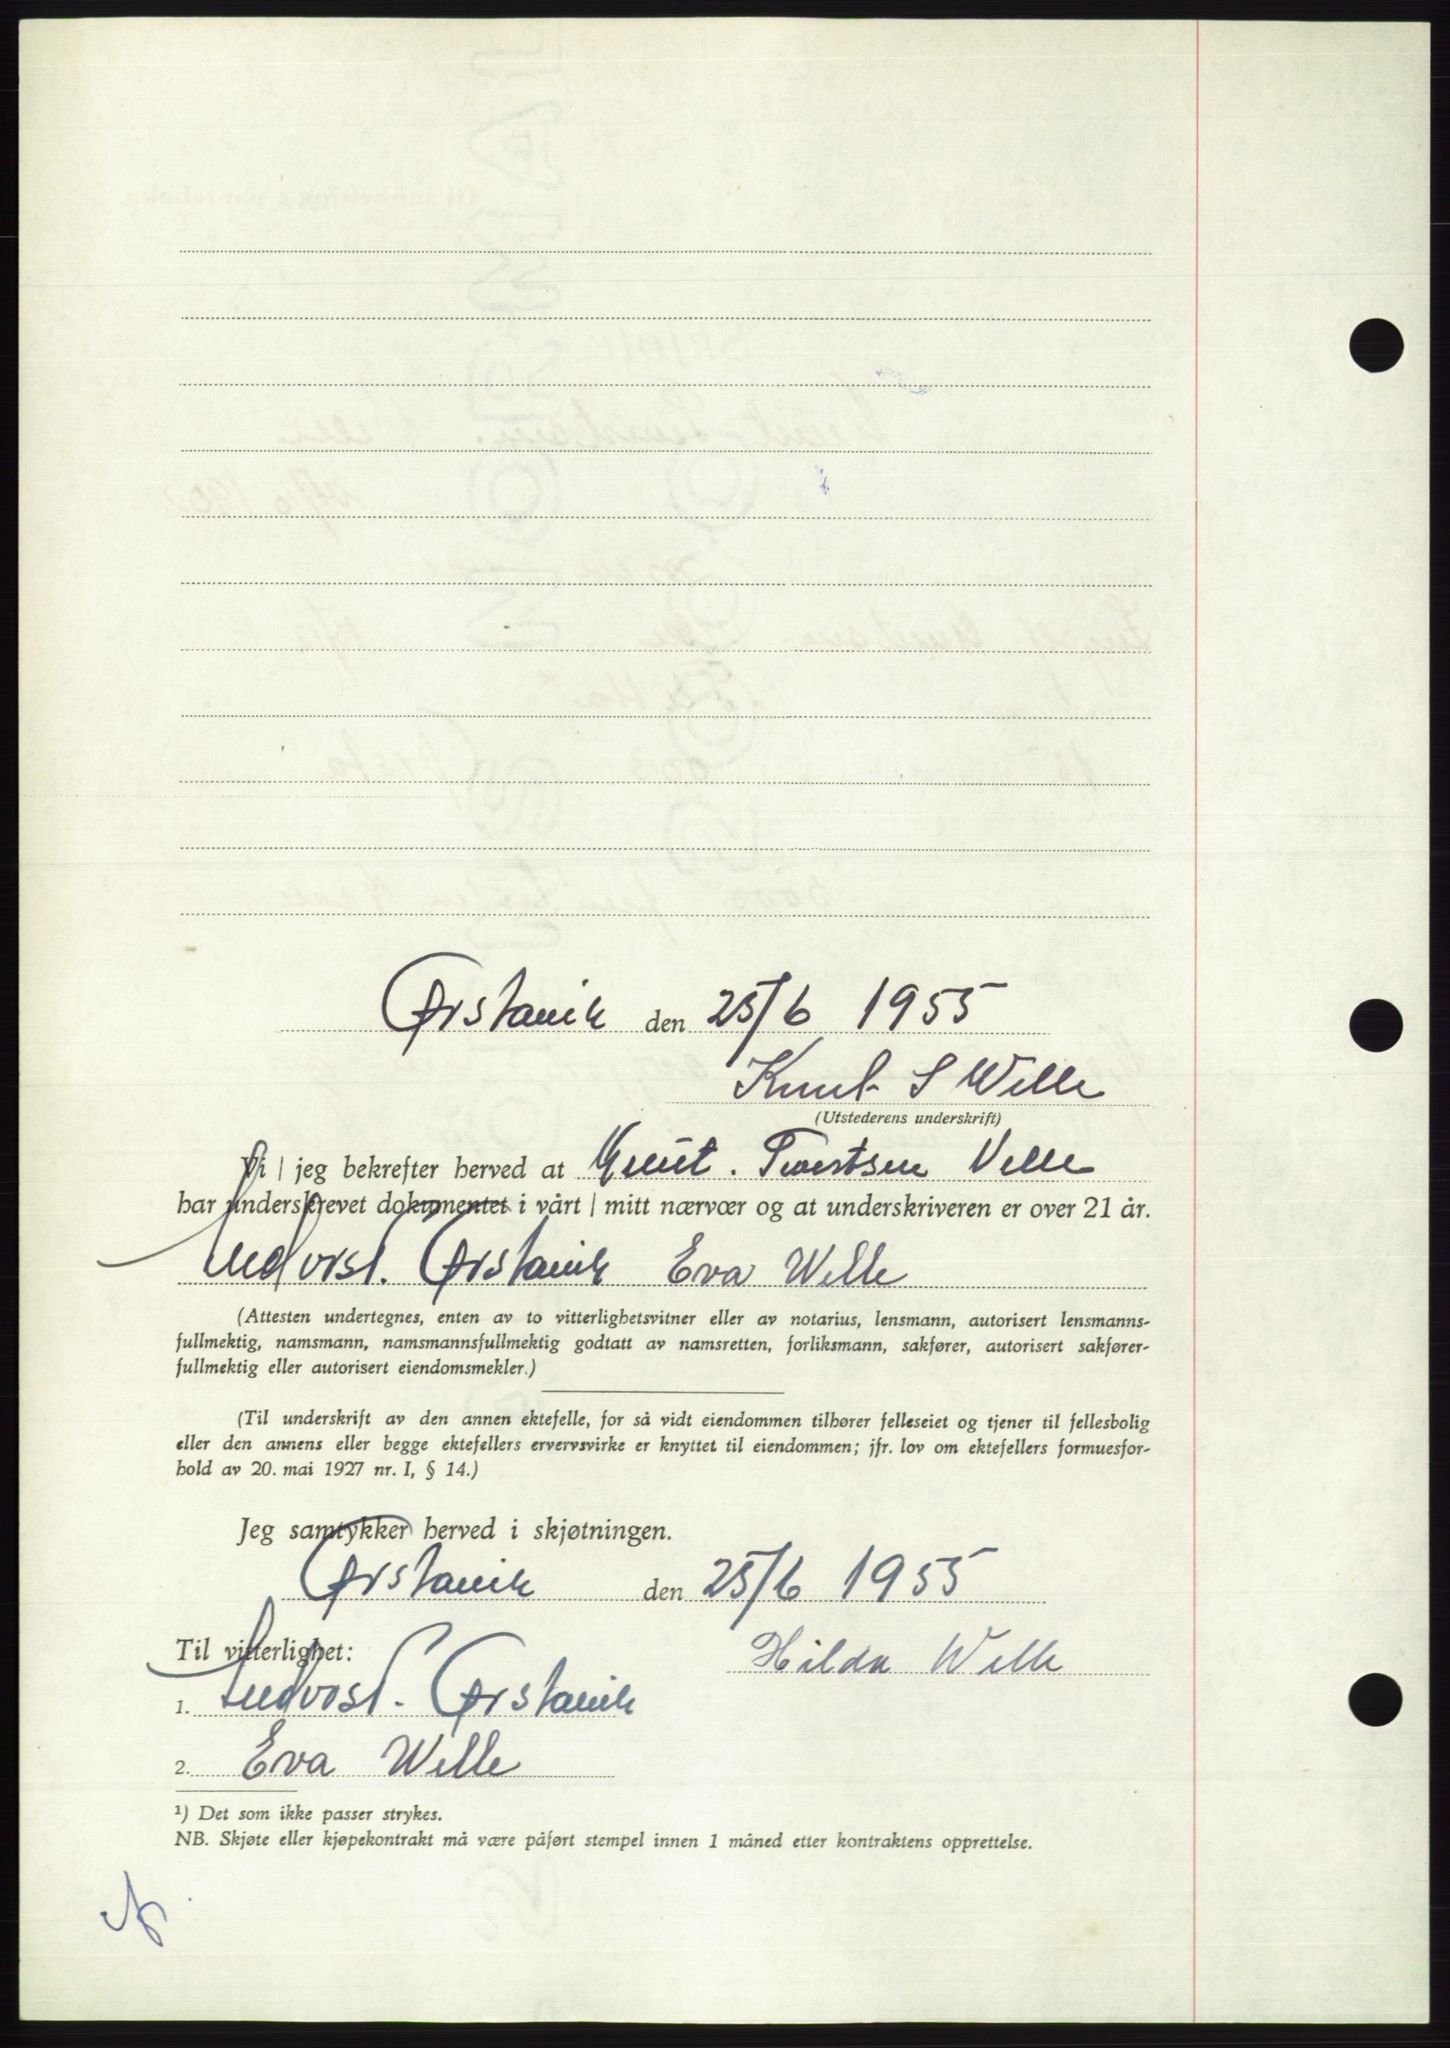 Ørstavik den 25/6 1955
Knut S Welle
(Utstederens underskrift)
Vi | jeg bekrefter herved at Knut Velle
har underskrevet dokumentet i vårt | mitt nærvær og at underskriveren er over 21 år.
Ørstavik Eva Welle
(Attesten undertegnes, enten av to vitterlighetsvitner eller av notarius, lensmann, autorisert lensmanns-
fullmektig, namsmann, namsmannsfullmektig godtatt av namsretten, forliksmann, sakfører, autorisert sakfører-
fullmektig eller autorisert eiendomsmekler.)
(Til underskrift av den annen ektefelle, for så vidt eiendommen tilhører felleseiet og tjener til fellesbolig
eller den annens eller begge ektefellers ervervsvirke er knyttet til eiendommen; jfr. lov om ektefellers formuesfor-
hold av 20. mai 1927 nr. I, § 14.)
Jeg samtykker herved i skjøtningen.
Ørstavik den 25/6 1955
Til vitterlighet:
Hilda Welle
1. Ørstavik
2. Eva Welle
¹) Det som ikke passer strykes.
NB. Skjøte eller kjøpekontrakt må være påført stempel innen 1 måned etter kontraktens opprettelse.